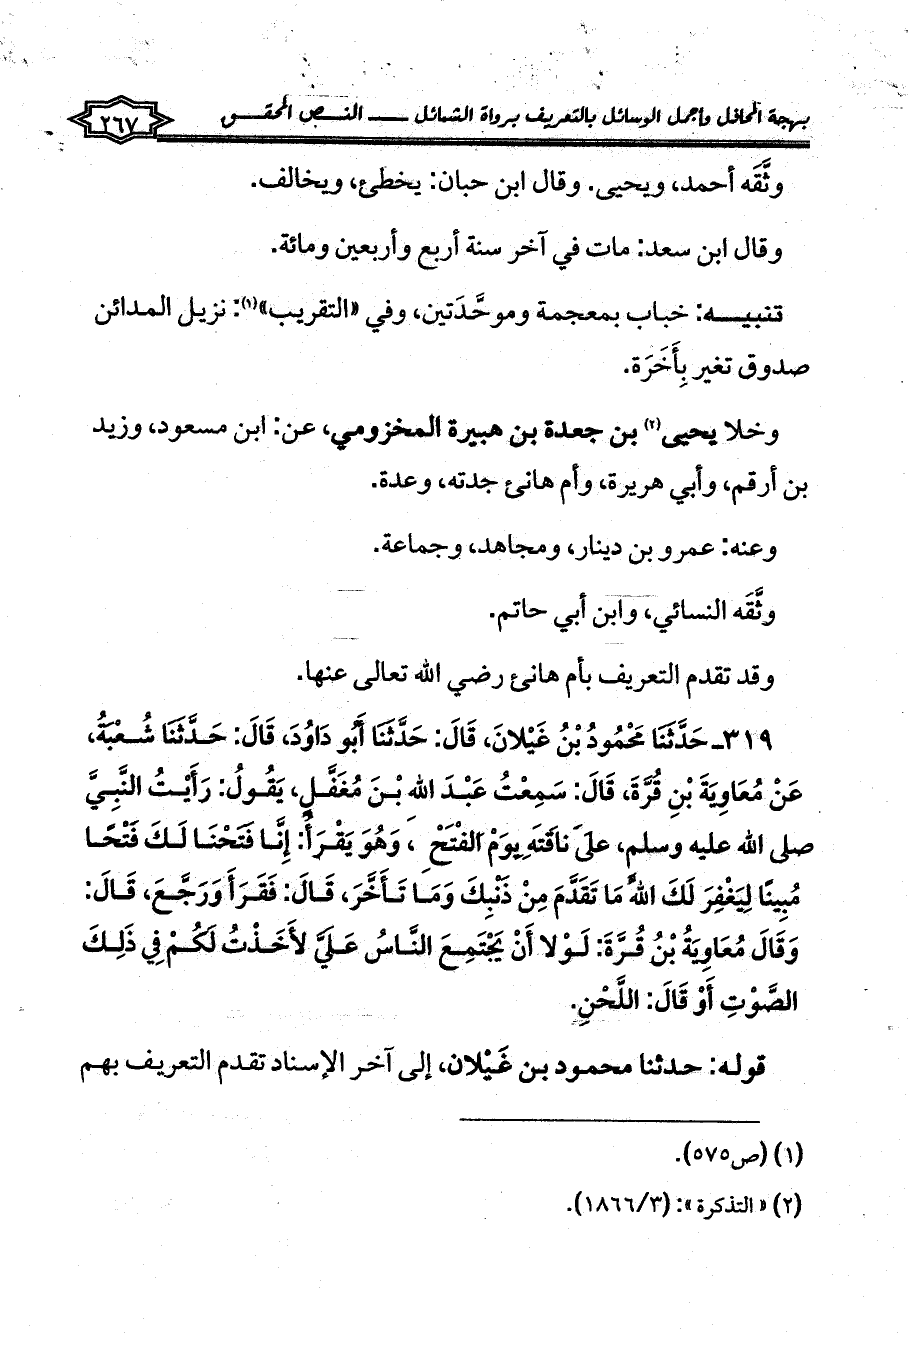 بهجة المحافل وأجمل الوسائل بالتعريف برواة الشمائل ــــ النـص المحقـق
٢٦٧
وثَّقَه أحمد، ويحيى. وقال ابن حبان: يخطئ، ويخالف.
وقال ابن سعد: مات في آخر سنة أربع وأربعين ومائة.
تنبيـــه: خباب بمعجمة وموحَّدَتين، وفي «التقريب»(١): نزيل المدائن
صدوق تغير بِأَخَرَة.
وخلا يحيى(٢) بن جعدة بن هبيرة المخزومي، عن: ابن مسعود، وزيد
بن أرقم، وأبي هريرة، وأم هانئ جدته، وعدة.
وعنه: عمرو بن دينار، ومجاهد، وجماعة.
وثَّقَه النسائي، وابن أبي حاتم.
وقد تقدم التعريف بأم هانئ رضي الله تعالى عنها.
٣١٩ـ حَدَّثَنَا مَحْمُودُ بْنُ غَيْلانَ، قَالَ: حَدَّثَنَا أَبُو دَاوُدَ، قَالَ: حَدَّثَنَا شُعْبَةُ،
عَنْ مُعَاوِيَةَ بْنِ قُرَّةَ، قَالَ: سَمِعْتُ عَبْدَ الله بْنَ مُغَفَّلٍ، يَقُولُ: رَأَيْتُ النَّبِيَّ
صلى الله عليه وسلم، عَلَى نَاقَتِهِ يَوْمَ الفَتْحِ، وَهُوَ يَقْرَأُ: إِنَّا فَتَحْنَا لَكَ فَتْحًا
مُبِينًا لِيَغْفِرَ لَكَ اللهُ مَا تَقَدَّمَ مِنْ ذَنْبِكَ وَمَا تَأَخَّرَ، قَالَ: فَقَرَأَ وَرَجَّعَ، قَالَ:
وَقَالَ مُعَاوِيَةُ بْنُ قُرَّةَ: لَوْلا أَنْ يَجْتَمِعَ النَّاسُ عَلَيَّ لأَخَذْتُ لَكُمْ فِي ذَلِكَ
الصَّوْتِ أَوْ قَالَ: اللَّحْنِ.
قوله: حدثنا محمود بن غَيْلان، إلى آخر الإسناد تقدم التعريف بهم
(١) (ص٥٧٥).
(٢) «التذكرة»: (١٨٦٦/٣).